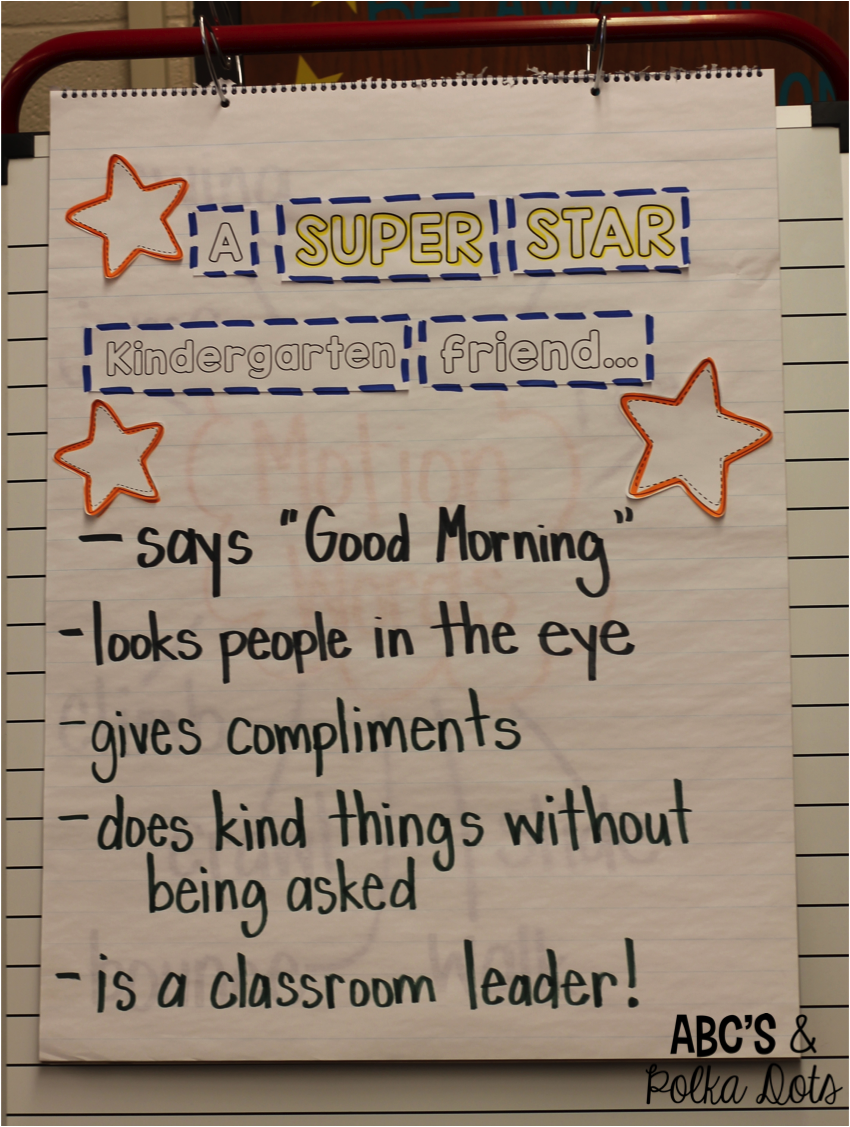 A SUPER STAR
Kindergarten friend...
- says "Good Morning"
- looks people in the eye
- gives compliments
- does kind things without
being asked
- is a classroom leader!
ABC'S &
Polka Dots